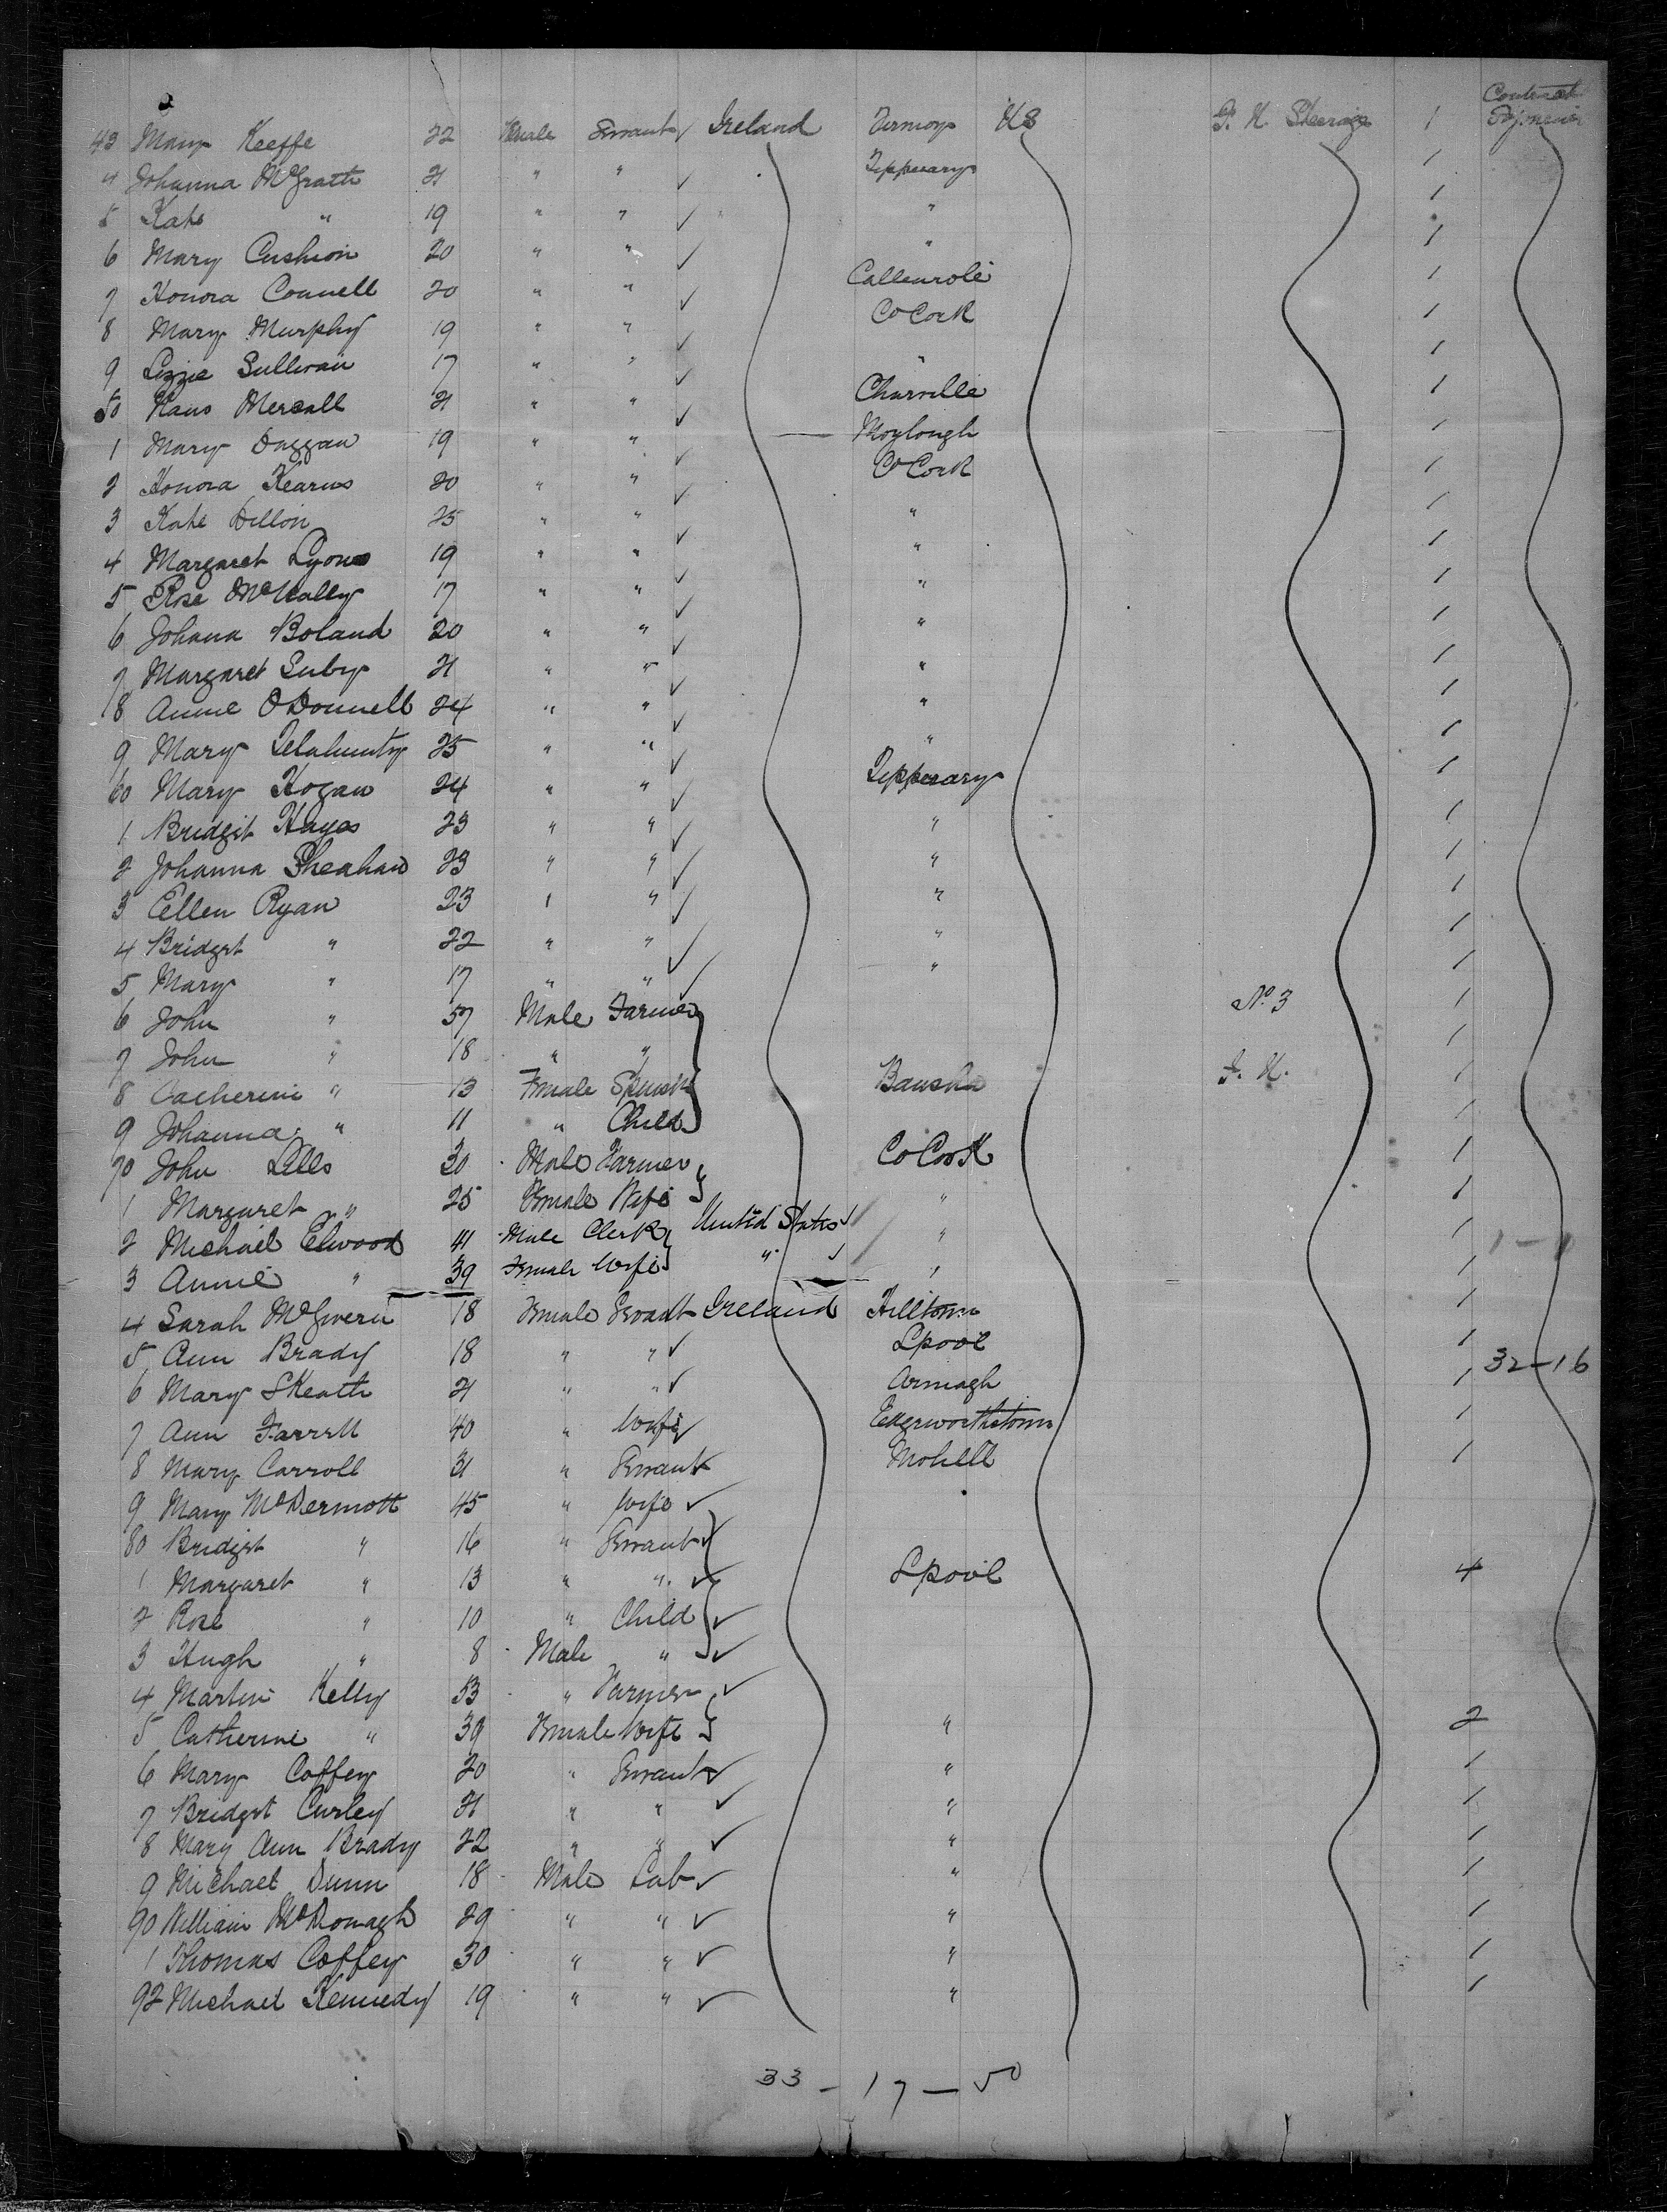 Contract
43 Mary Keeffe 22 Female Servant Ireland Fermoy US F. H. Steerage 1 Sojourner
4 Johanna McGrath 21 " " Tipperary 1
5 Kate " 19 " " " 1
6 Mary Cushion 20 " " " 1
7 Honora Connell 20 " " 1
8 Mary Murphy 19 " " Co Cork 1
9 Lizzie Sullivan 17 " " " 1
50 21 " " Charville 1
1 Mary Duggan 19 " " Moylough 1
2 Honora Kearns 20 " " Co Cork 1
3 Kate Dillon 25 " " " 1
4 Margaret Lyons 19 " " " 1
5 Rose McNally 17 " " " 1
6 Johana Boland 20 " " " 1
7 Margaret Luby 21 " " " 1
8 Annie ODonnell 24 " " " 1
9 Mary Delahunty 25 " " " 1
60 Mary Hogan 24 " " Tipperary 1
1 Bridgit Hayes 23 " " " 1
2 Johanna Sheahan 23 " " " 1
3 Ellen Ryan 23 " " " 1
4 Bridget " 22 " " " 1
5 Mary " 17 " " " 1
6 John " 57 Male Farmer No 3 1
7 John " 18 " " 1
8 Catherine " 13 Female Spinster Bansha F. H. 1
9 Johanna " 11 " Child 1
70 John Lills 30 Male Farmer Co Cork 1
1 Margaret " 25 Female Wife " 1
2 Michael Elwood 41 Male Clerk United States " 1 1 - 1
3 Annie " 39 Female Wife " " 1
4 Sarah McGivern 18 Female Servant Ireland Hilltown 1
5 Ann Brady 18 " " Lpool 1
6 Mary Skeath 21 " " Armagh 1 32-16
7 Ann Farrell 40 " Wife Edgeworthstown 1
8 Mary Carroll 31 " Servant Mohill 1
9 Mary McDermott 45 " Wife
80 Bridget " 16 " Servant
1 Margaret " 13 " " Lpool 4
2 Rose " 10 " Child
3 Hugh " 8 Male "
4 Martin Kelly 53 " Farmer
5 Catherine " 39 Female Wife " 2
6 Mary Coffey 20 " Servant " 1
7 Bridget Curley 21 " " " 1
8 Mary Ann Brady 22 " " " 1
9 Michael Dunn 18 Male Lab " 1
90 William McDonagh 29 " " " 1
1 Thomas Coffey 30 " " " 1
92 Michael Kennedy 19 " " " 1
33 - 17 - 50